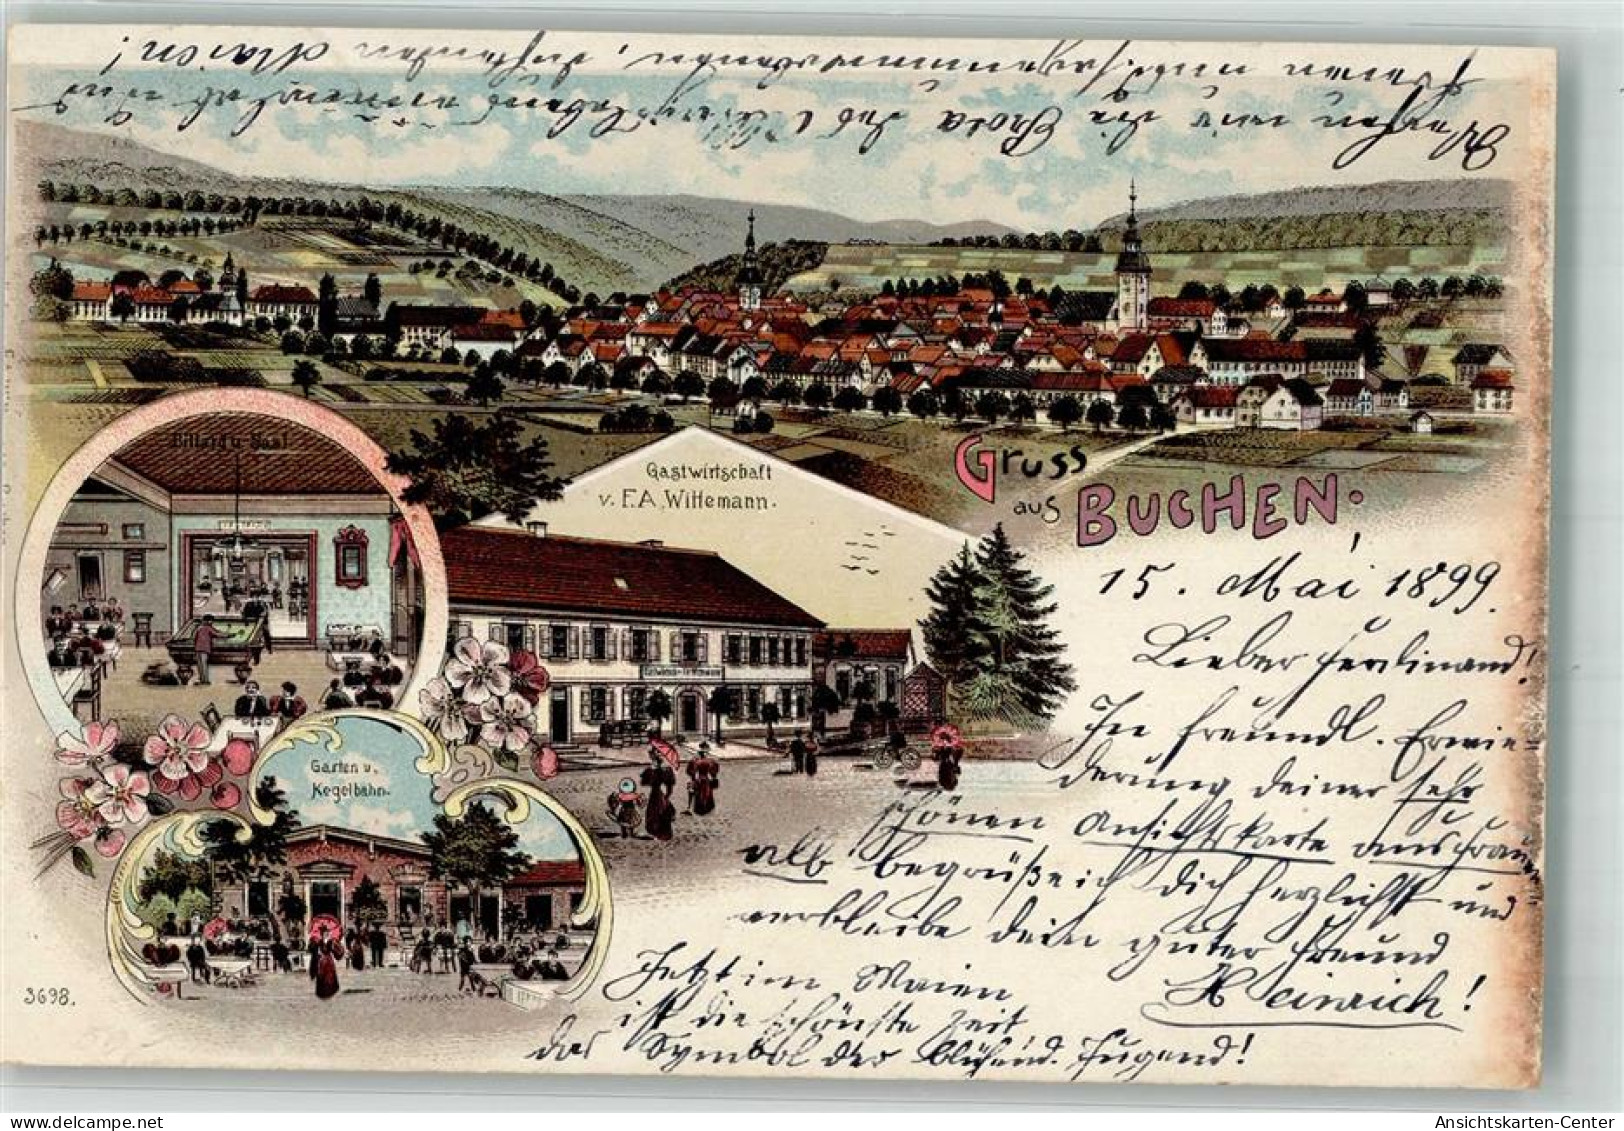 Gruss
aus
BUCHEN.
Billard u. Saal
Gastwirtschaft
v. F. A. Wittemann.
Garten u.
Kegelbahn.
3698.
15. Mai 1899.
Lieber Ferdinand!
In freundl. Erwie=
derung deiner sehr
schönen Ansichtskarte aus
alb begrüße ich Dich herzlichst und
verbleibe dein guter Freund
Heinrich!
Jetzt im Maien
ist die schönste Zeit
das Symbol der blühend. Jugend!
wir die Rosa des
im duftenden Maien!
Ansichtskarten-Center